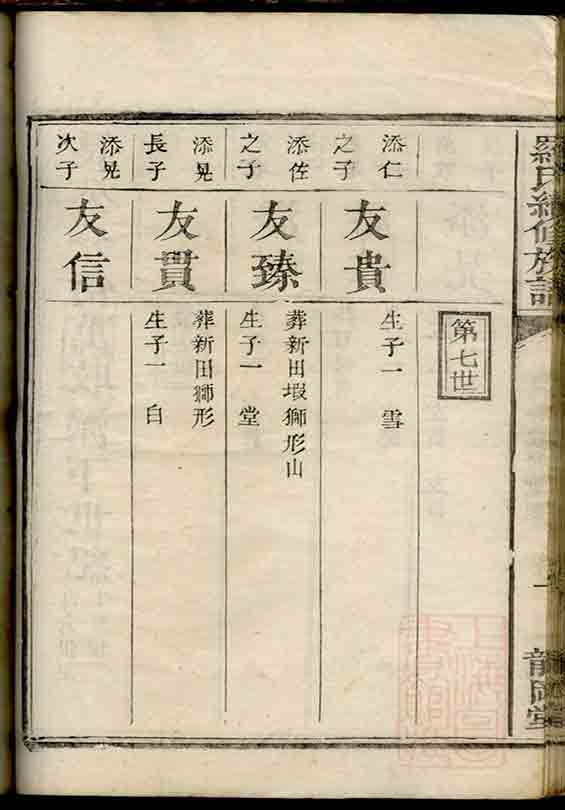 羅氏續修族譜
第七世
添仁
之子
友貴
生子一 雪
添佐
之子
友臻
葬新田塅獅形山
生子一 堂
添晃
長子
友貫
葬新田獅形
生子一 白
添晃
次子
友信